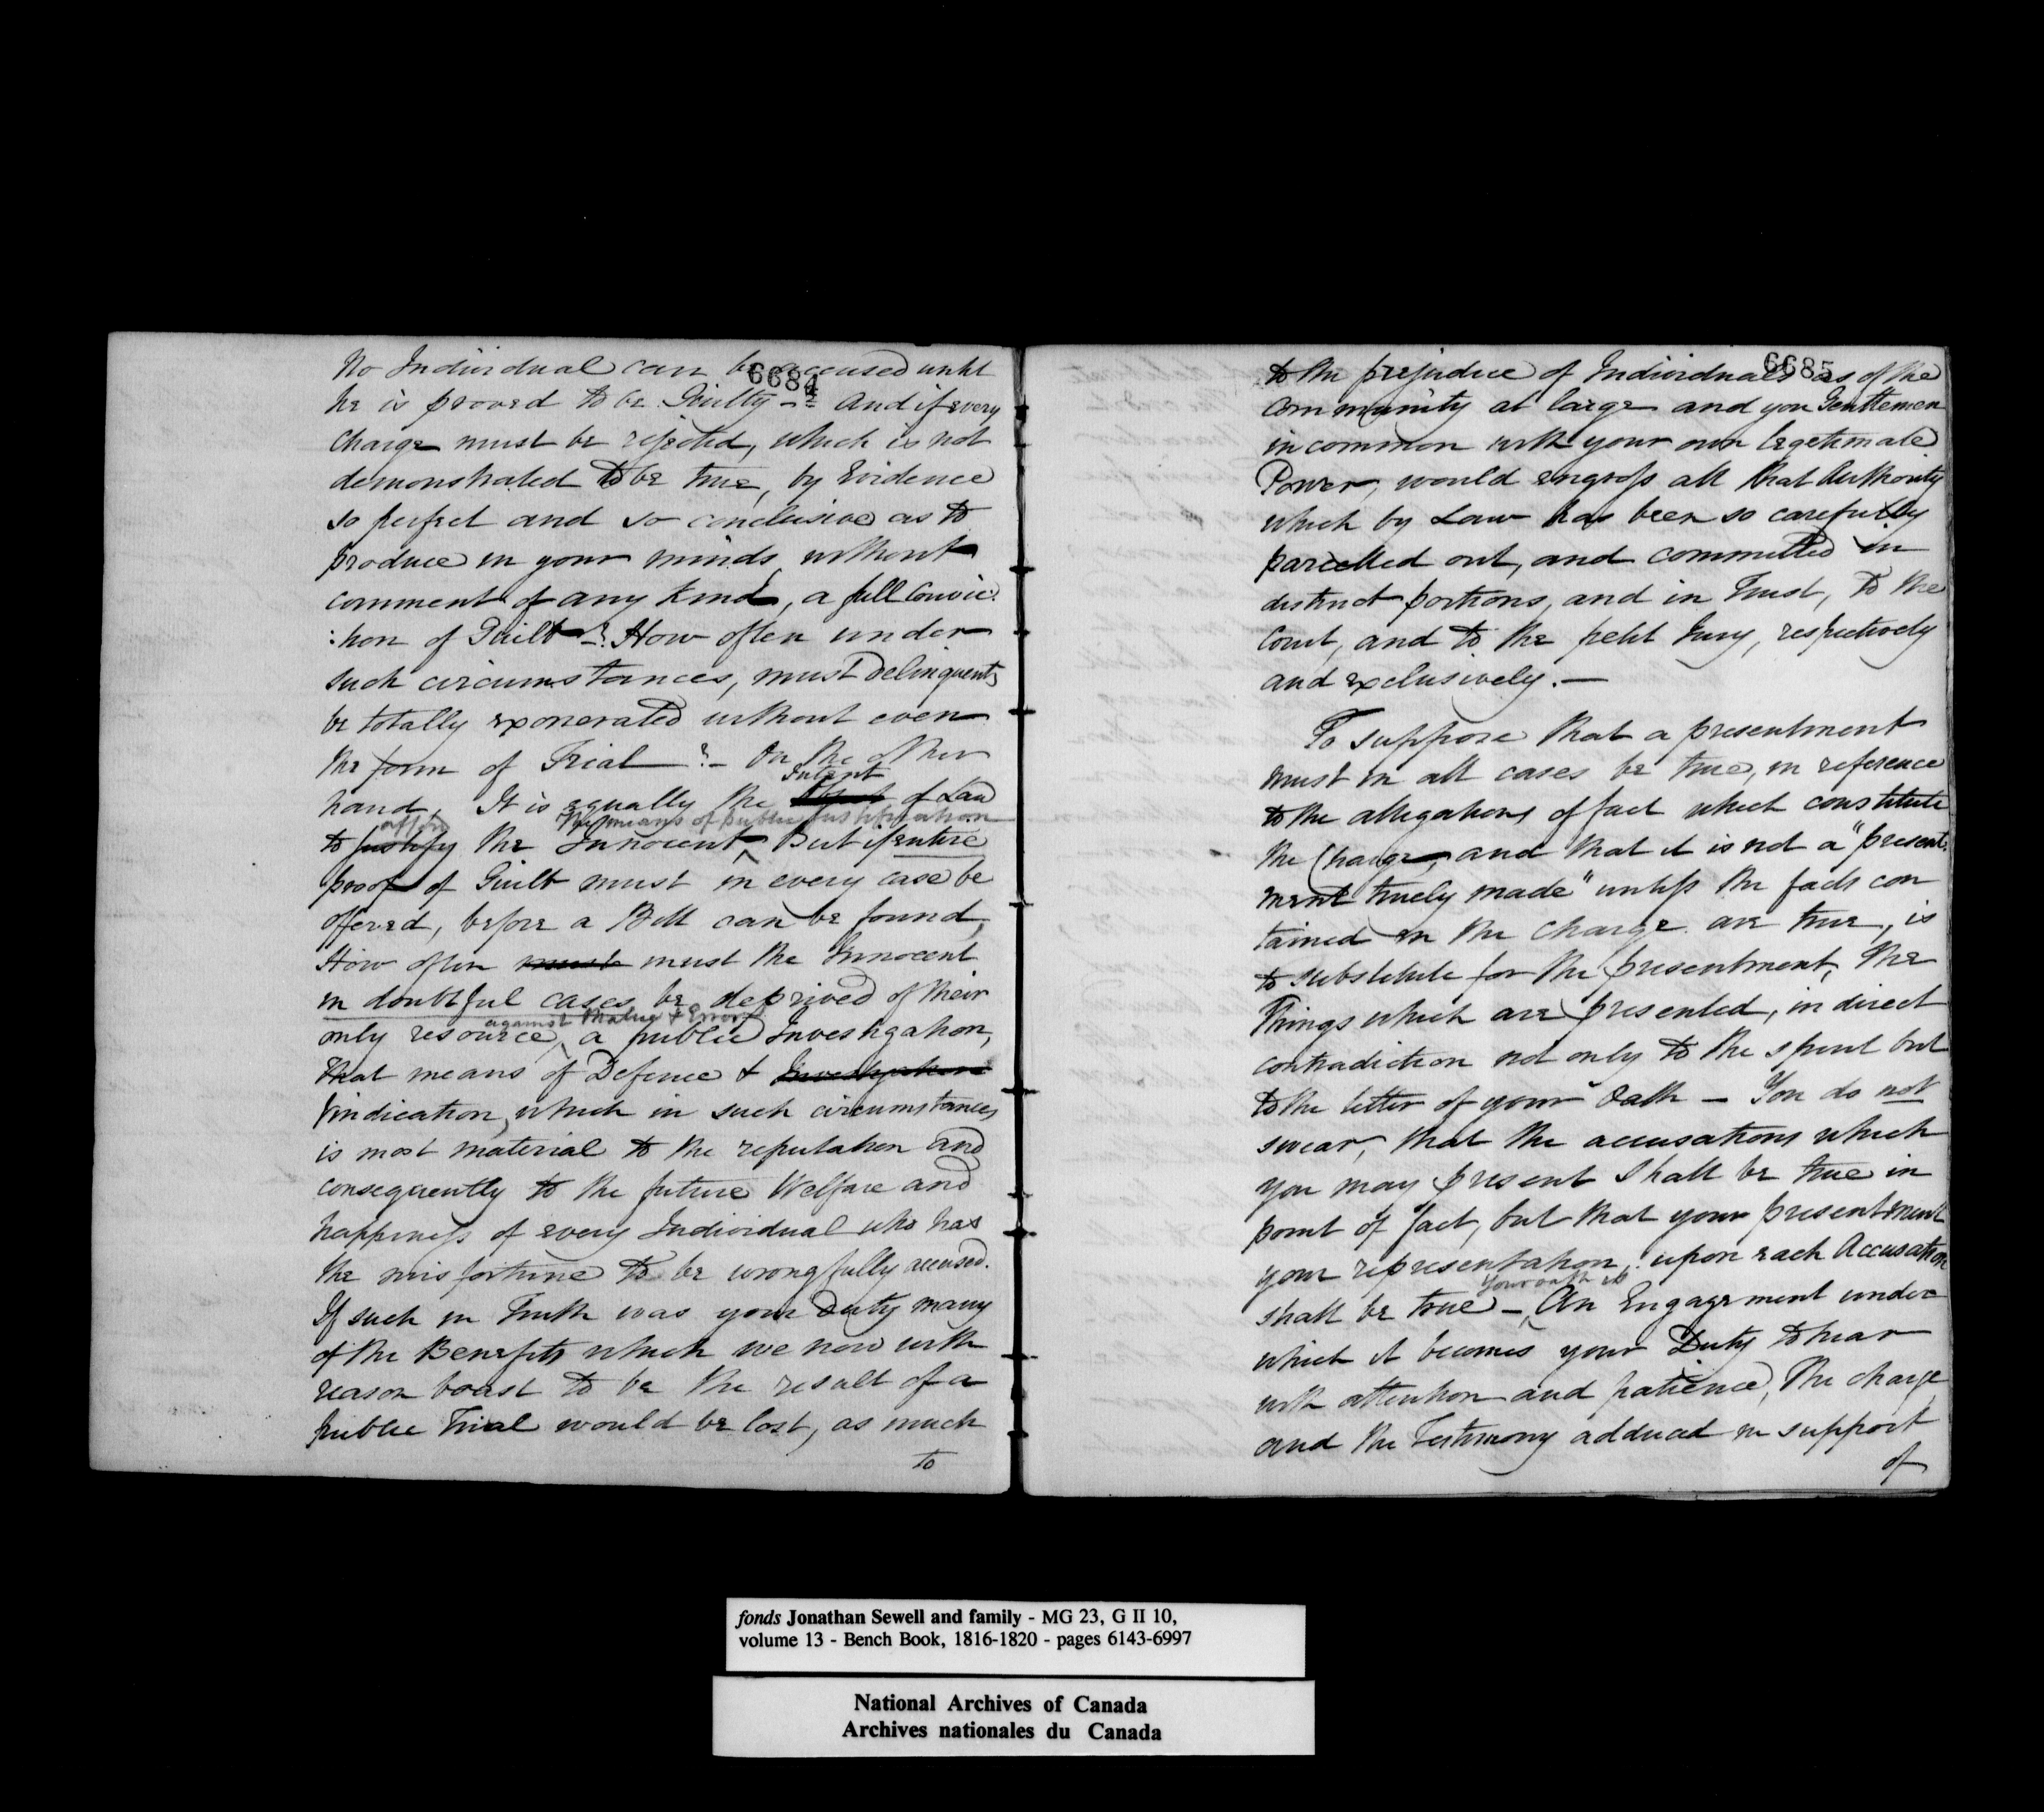 6684
No Individual can be accused until
he is proved to be Guilty – And if every
Charge must be rejected, which is not
demonstrated to be true, by Evidence
so perfect and so conclusive as to
produce in your minds without
comment of any kind, a full Convic:
:tion of Guilt –? How often under
such circumstances, must Delinquents
be totally exonerated without even
the form of Trial –? – On the other
Intent
hand, It is equally the Object of Law
afford the means of public Justification
to justify the Innocent, But if entire
proof of Guilt must in every case be
offered, before a Bill can be found,
How often must must the Innocent
in doubtful cases be deprived of their
against Malice & Error
only resource, a public Investigation,
that means of Defence & Investigation
Vindication, which in such circumstances
is most material to the reputation and
consequently to the future Welfare and
happiness of every Individual who has
the misfortune to be wrongfully accused.
If such in Truth was your Duty many
of the Benefits which we now with
reason boast to be the result of a
public Trial would be lost, as much
to
6685
to the prejudice of Individuals as of the
Community at large and you Gentlemen
in common with your own legetimate
Power, would engross all that Authority
which by Law has been so carefully
parcelled out, and committed in
distinct portions, and in Trust, to the
Court, and to the petit Jury, respectively
and exclusively. —
To suppose that a presentment
must in all cases be true, in reference
to the allegations of fact which constitute
the Charge, and that it is not a "present:
ment truely made" unless the facts con
tained in the Charge are true, is
to substitute for the presentment, the
Things which are presented, in direct
contradiction not only to the spirit but
to the letter of your Oath – You do not
swear, that the accusations which
you may present shall be true in
point of fact, but that your presentment
your representation, upon each Accusation
Your oath is
shall be true –, An Engagement under
which it becomes your Duty to hear
with attention and patience, the charge
and the Testimony adduced in support
of
fonds Jonathan Sewell and family - MG 23, G II 10,
volume 13 - Bench Book, 1816-1820 - pages 6143-6997
National Archives of Canada
Archives nationales du Canada